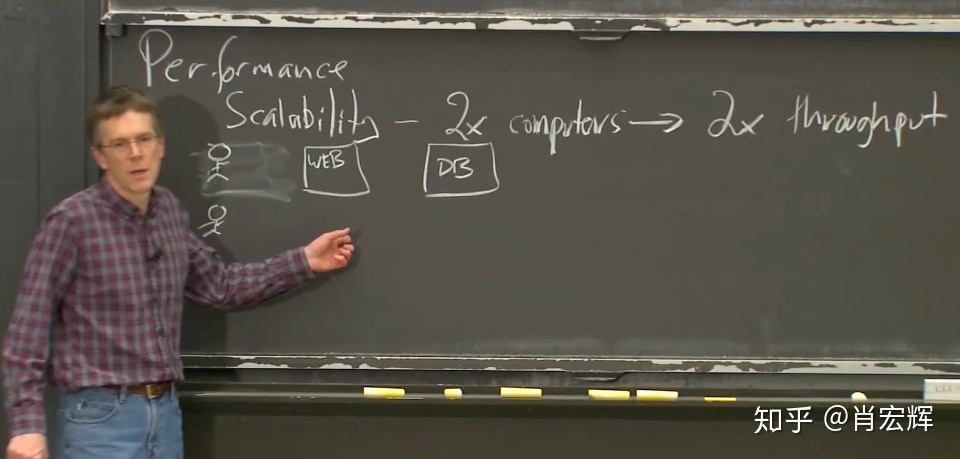 Performance
Scalability — 2x computers → 2x throughput
WEB DB
知乎 @肖宏辉